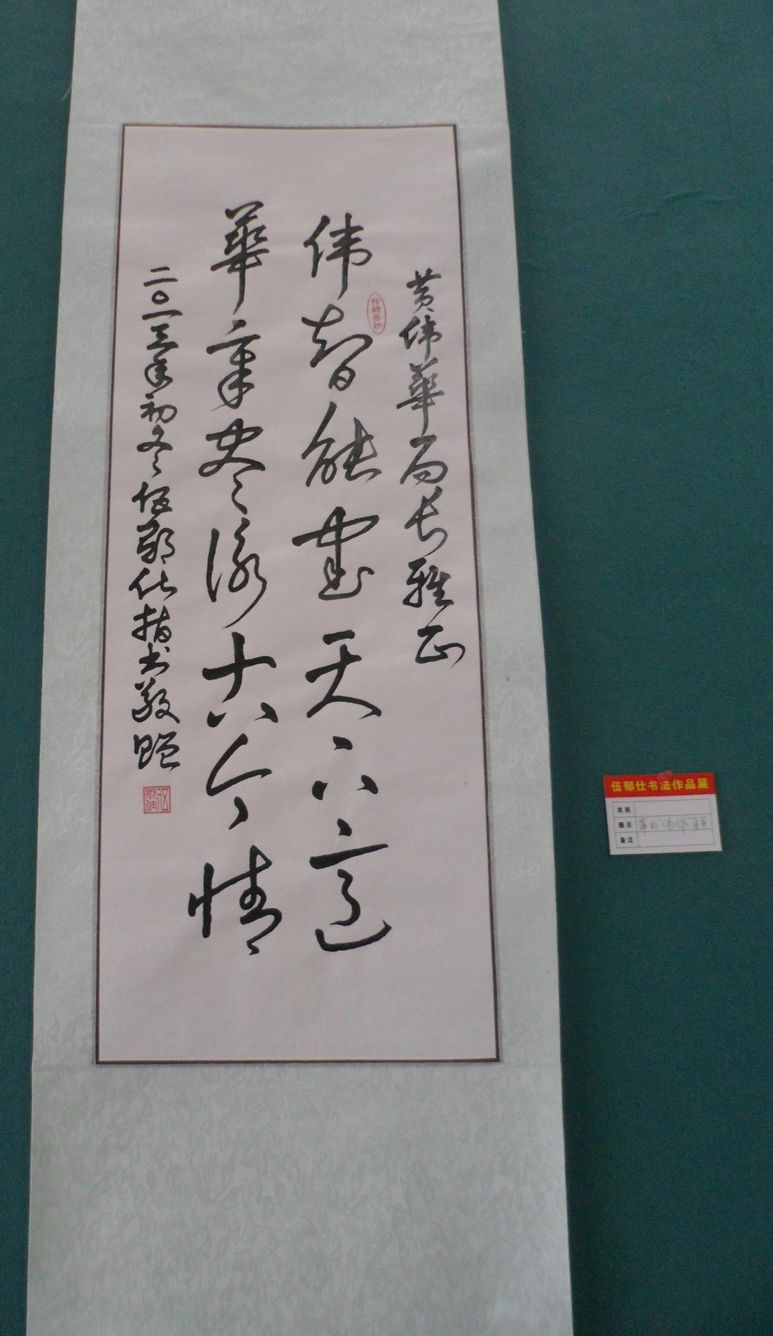 黄伟華局长雅正
伟智能書天下意
華章史泳古今情
二〇一三年初冬伍郁仕指书敬赠
伍郁仕书法作品展
类别
备注